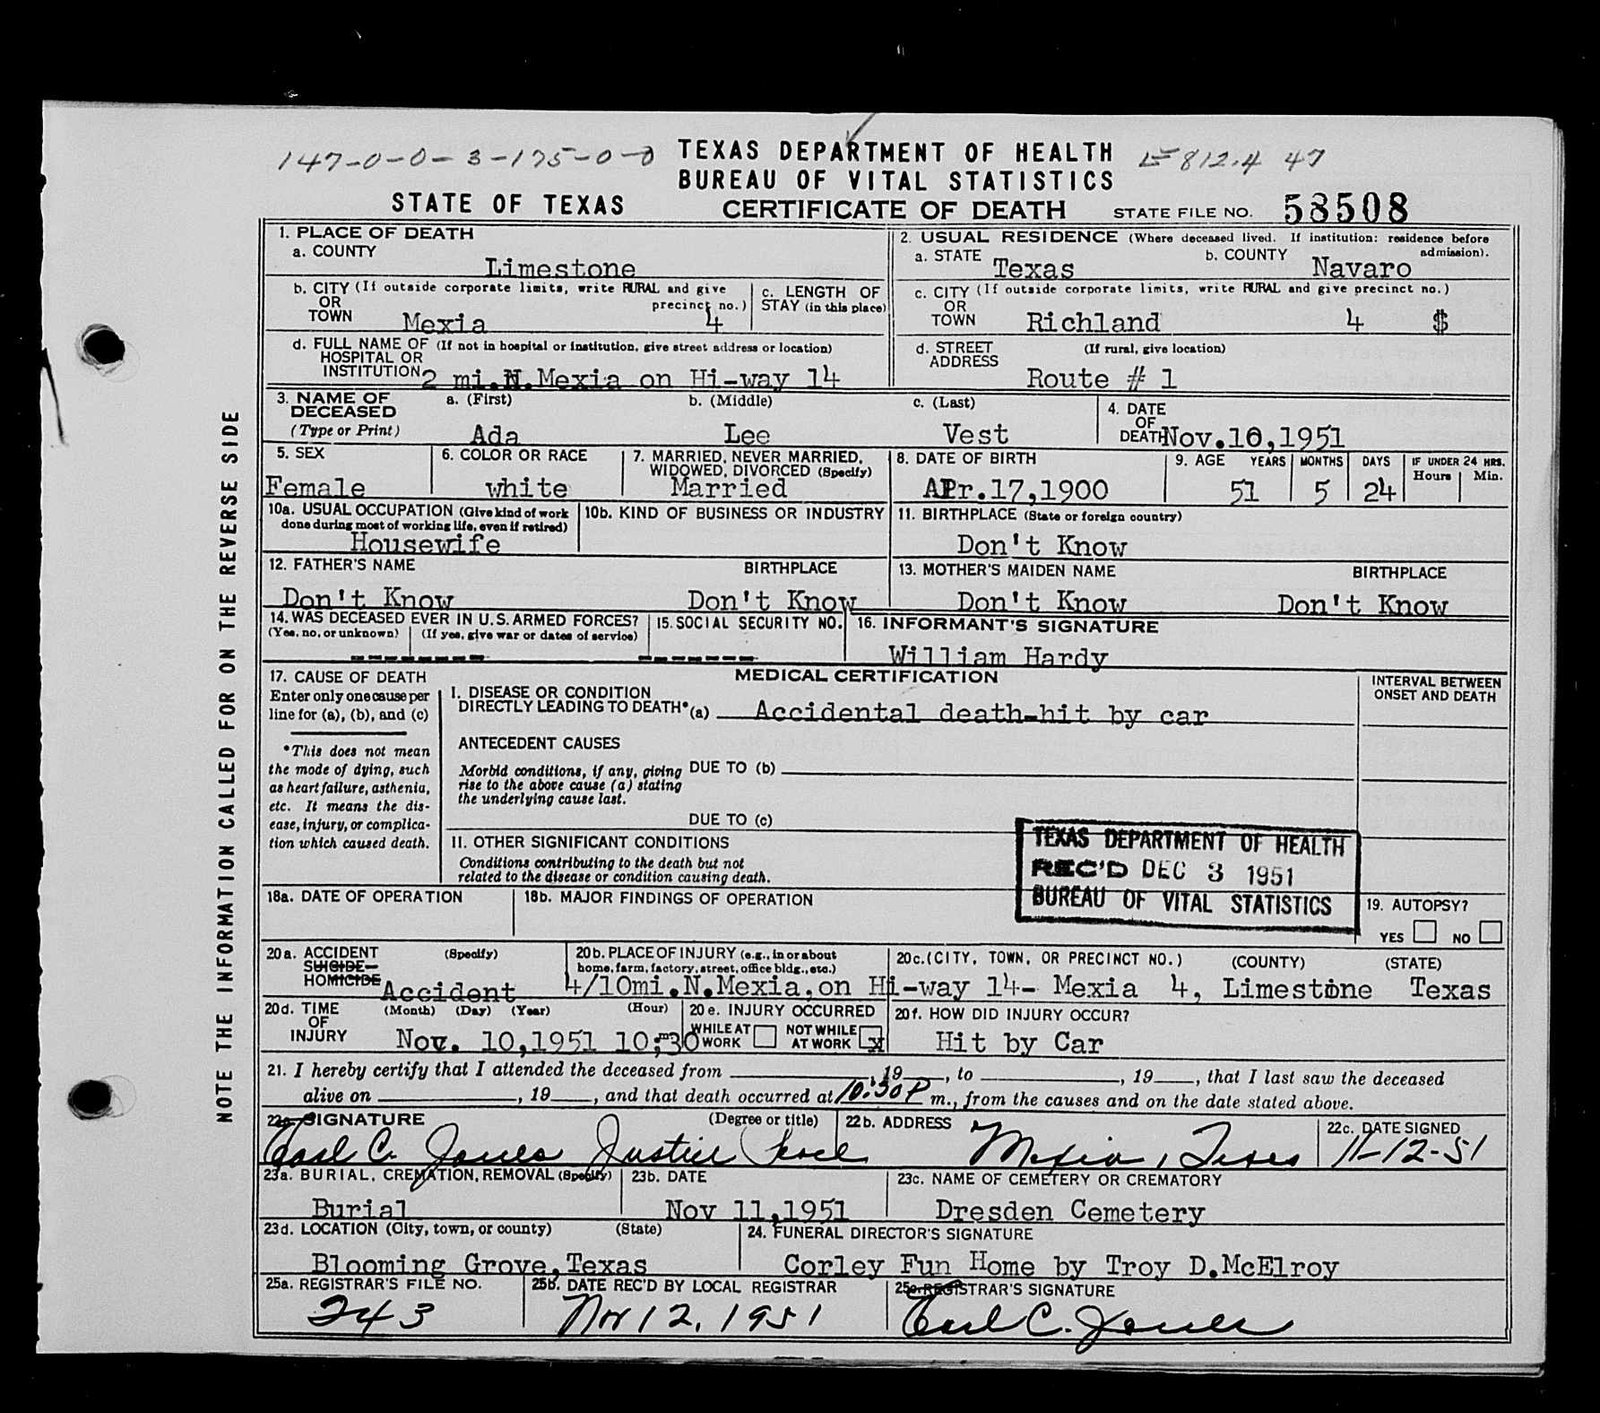 147-0-0-3-175-0-0 TEXAS DEPARTMENT OF HEALTH 812.4 47
BUREAU OF VITAL STATISTICS
STATE OF TEXAS CERTIFICATE OF DEATH STATE FILE NO. 58508
1. PLACE OF DEATH 2. USUAL RESIDENCE (Where deceased lived. If institution: residence before admission).
a. COUNTY Limestone a. STATE Texas b. COUNTY Navaro
b. CITY (If outside corporate limits, write RURAL and give precinct no.) OR TOWN Mexia 4 c. LENGTH OF STAY (in this place) c. CITY (If outside corporate limits, write RURAL and give precinct no.) OR TOWN Richland 4 $
d. FULL NAME OF (If not in hospital or institution, give street address or location) HOSPITAL OR INSTITUTION 2 mi.N.Mexia on Hi-way 14 d. STREET ADDRESS (If rural, give location) Route # 1
3. NAME OF DECEASED (Type or Print) a. (First) Ada b. (Middle) Lee c. (Last) Vest 4. DATE OF DEATH Nov.10,1951
5. SEX Female 6. COLOR OR RACE white 7. MARRIED, NEVER MARRIED, WIDOWED, DIVORCED (Specify) Married 8. DATE OF BIRTH APr.17,1900 9. AGE YEARS 51 MONTHS 5 DAYS 24 IF UNDER 24 HRS. Hours Min.
10a. USUAL OCCUPATION (Give kind of work done during most of working life, even if retired) Housewife 10b. KIND OF BUSINESS OR INDUSTRY 11. BIRTHPLACE (State or foreign country) Don't Know
12. FATHER'S NAME BIRTHPLACE 13. MOTHER'S MAIDEN NAME BIRTHPLACE
Don't Know Don't Know Don't Know Don't Know
14. WAS DECEASED EVER IN U.S. ARMED FORCES? (Yes, no, or unknown) (If yes, give war or dates of service) ------- 15. SOCIAL SECURITY NO. ------ 16. INFORMANT'S SIGNATURE William Hardy
17. CAUSE OF DEATH MEDICAL CERTIFICATION INTERVAL BETWEEN ONSET AND DEATH
Enter only one cause per line for (a), (b), and (c)
I. DISEASE OR CONDITION DIRECTLY LEADING TO DEATH*(a) Accidental death-hit by car
*This does not mean the mode of dying, such as heart failure, asthenia, etc. It means the disease, injury, or complication which caused death.
ANTECEDENT CAUSES
Morbid conditions, if any, giving rise to the above cause (a) stating the underlying cause last.
DUE TO (b)
DUE TO (c)
II. OTHER SIGNIFICANT CONDITIONS
Conditions contributing to the death but not related to the disease or condition causing death.
TEXAS DEPARTMENT OF HEALTH
REC'D DEC 3 1951
BUREAU OF VITAL STATISTICS
18a. DATE OF OPERATION 18b. MAJOR FINDINGS OF OPERATION 19. AUTOPSY? YES NO
20a. ACCIDENT SUICIDE HOMICIDE (Specify) Accident 20b. PLACE OF INJURY (e.g., in or about home, farm, factory, street, office bldg., etc.) 20c. (CITY, TOWN, OR PRECINCT NO.) (COUNTY) (STATE)
4/10mi.N.Mexia,on Hi-way 14- Mexia 4, Limestone Texas
20d. TIME OF INJURY (Month) (Day) (Year) (Hour) Nov. 10,1951 10:30 20e. INJURY OCCURRED WHILE AT WORK NOT WHILE AT WORK x 20f. HOW DID INJURY OCCUR? Hit by Car
21. I hereby certify that I attended the deceased from , 19 , to , 19 , that I last saw the deceased
alive on , 19 , and that death occurred at 10:30 P m., from the causes and on the date stated above.
22a. SIGNATURE (Degree or title) 22b. ADDRESS 22c. DATE SIGNED
Earl C. Jones Justice Peace Mexia, Texas 11-12-51
23a. BURIAL, CREMATION, REMOVAL (Specify) Burial 23b. DATE Nov 11,1951 23c. NAME OF CEMETERY OR CREMATORY Dresden Cemetery
23d. LOCATION (City, town, or county) (State) Blooming Grove,Texas 24. FUNERAL DIRECTOR'S SIGNATURE Corley Fun Home by Troy D.McElroy
25a. REGISTRAR'S FILE NO. 243 25b. DATE REC'D BY LOCAL REGISTRAR Nov 12, 1951 25c. REGISTRAR'S SIGNATURE Earl C. Jones
NOTE THE INFORMATION CALLED FOR ON THE REVERSE SIDE